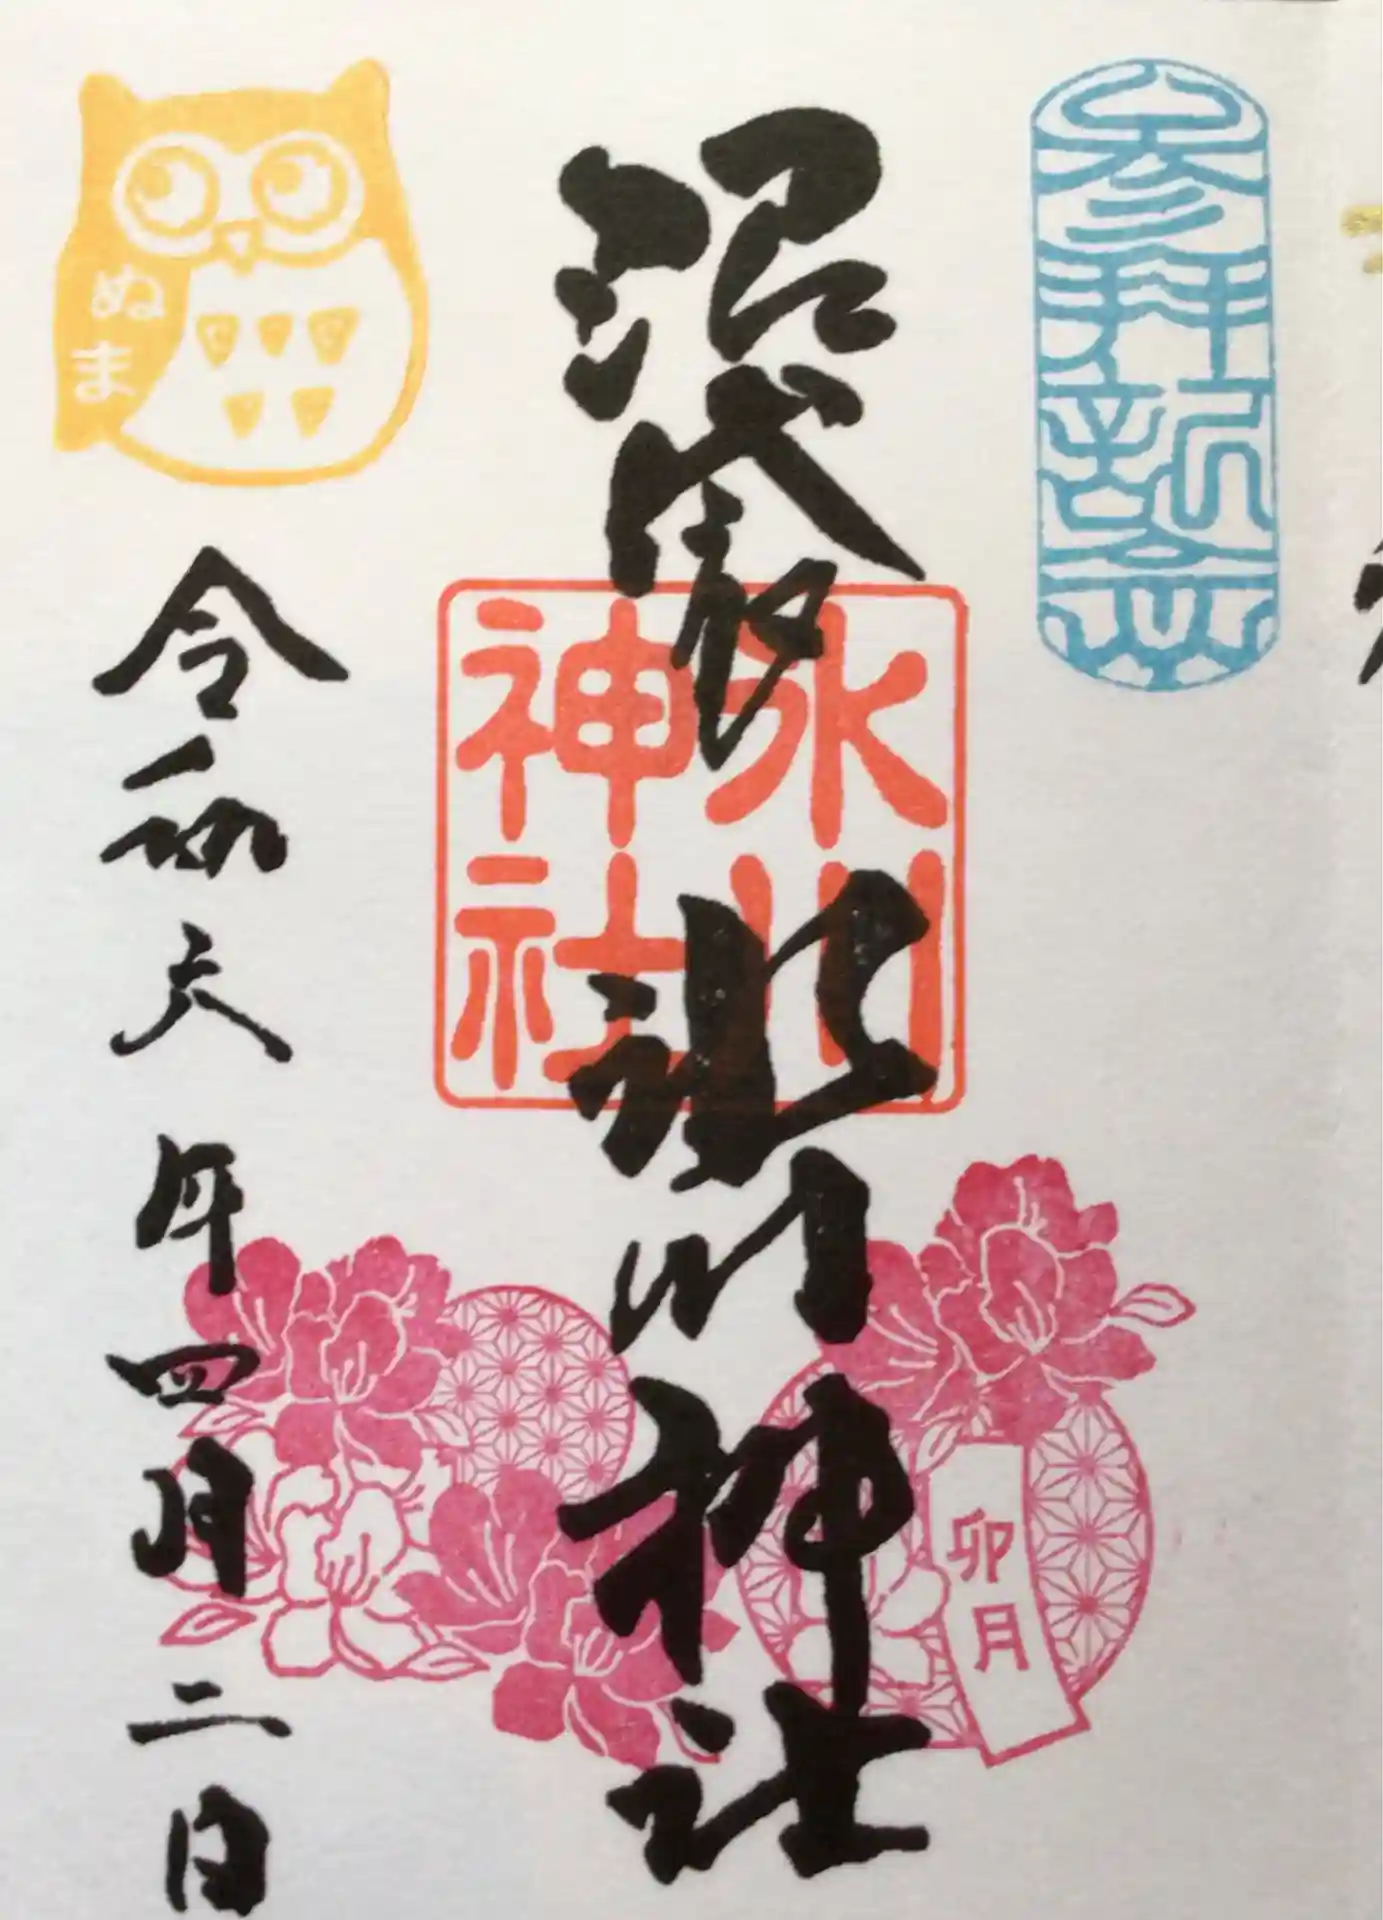 参拝新誉
沼袋
氷川神社
氷川
神社
卯月
ぬ
ま
令和六年四月二日